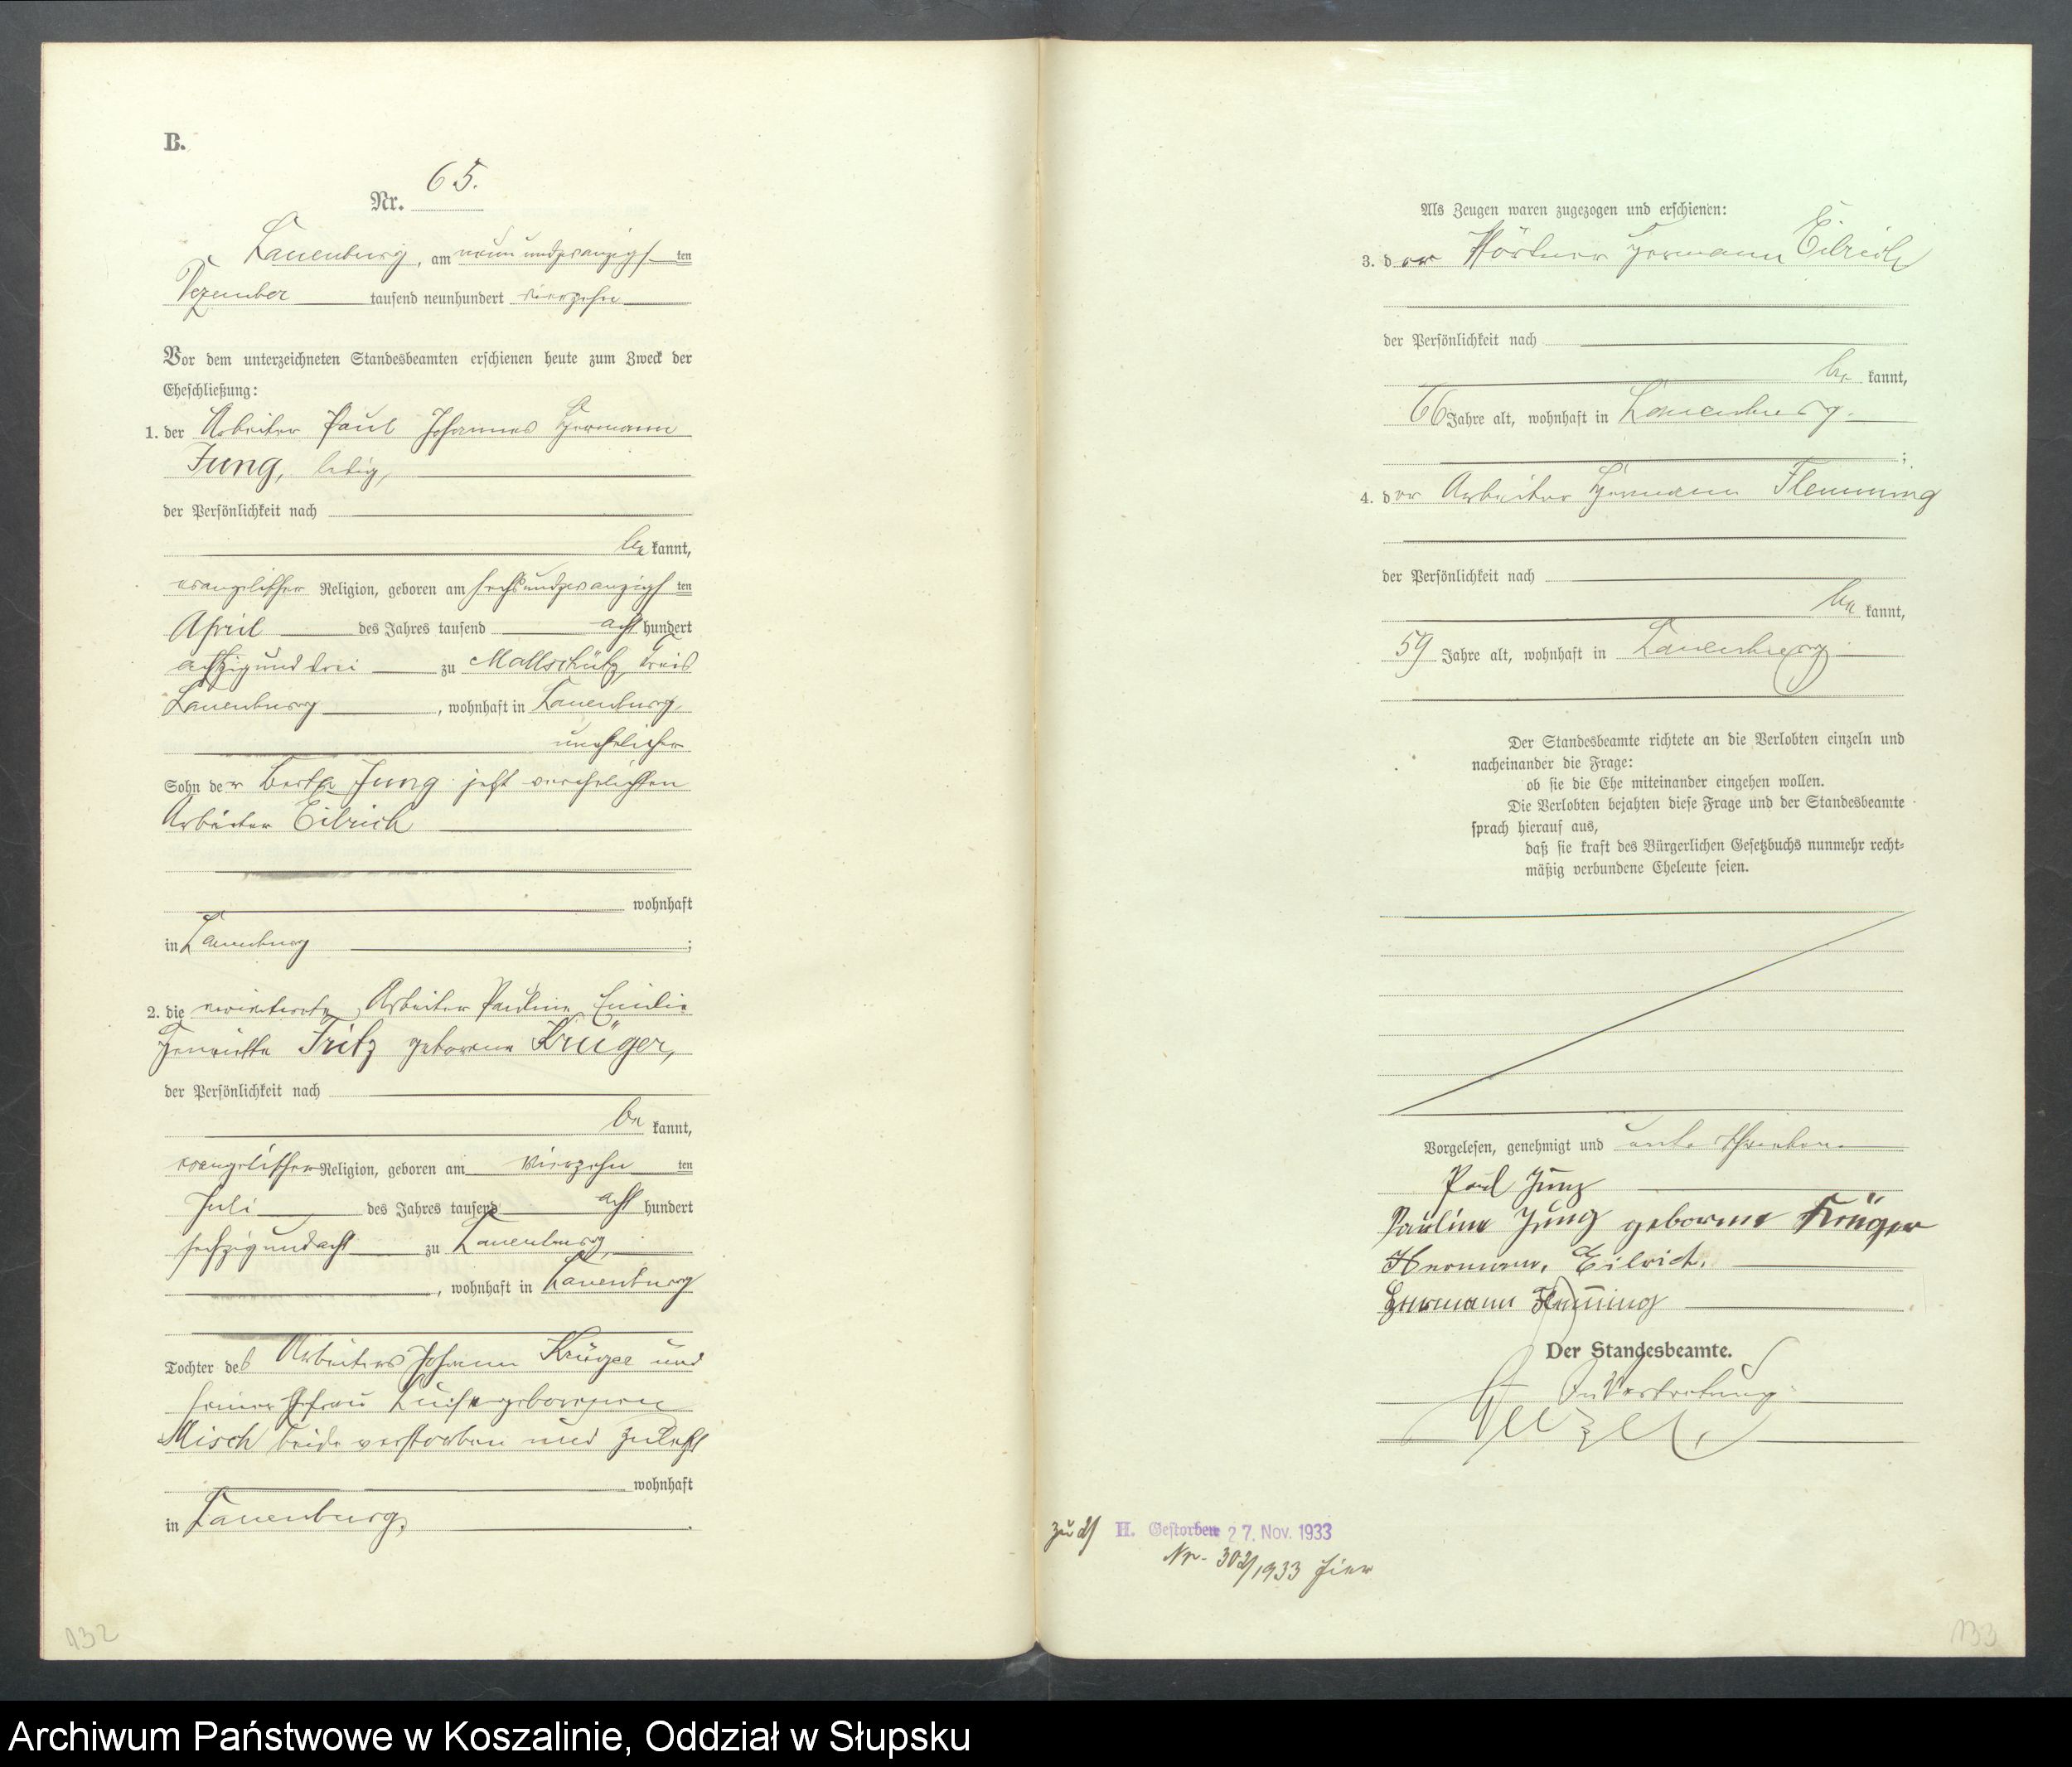 B.
Nr. 65.
Lauenburg, am neunundzwanzigsten
Dezember tausend neunhundert vierzehn
Vor dem unterzeichneten Standesbeamten erschienen heute zum Zweck der
Eheschließung:
1. der Arbeiter Paul Johannes Hermann
Jung, ledig,
der Persönlichkeit nach
bekannt,
evangelischer Religion, geboren am sechsundzwanzigsten
April des Jahres tausend achthundert
achtzigunddrei zu Mallschütz, Kreis
Lauenburg, wohnhaft in Lauenburg,
unehelicher
Sohn der Bertha Jung jetzt verehelichten
Arbeiter Eilrich
wohnhaft
in Lauenburg;
2. die verwitwete Arbeiter Pauline Emilie
Henriette Fritz geborene Krüger,
der Persönlichkeit nach
bekannt,
evangelischer Religion, geboren am vierzehnten
Juli des Jahres tausend achthundert
sechzigundacht zu Lauenburg,
, wohnhaft in Lauenburg
Tochter des Arbeiters Johann Krüger und
seiner Ehefrau geborenen
Misch beide verstorben und zuletzt
wohnhaft
in Lauenburg.
132
Als Zeugen waren zugezogen und erschienen:
3. der Hermann Eilrich
der Persönlichkeit nach
bekannt,
66 Jahre alt, wohnhaft in Lauenburg.
;
4. der Arbeiter Hermann Flemming
der Persönlichkeit nach
bekannt,
59 Jahre alt, wohnhaft in Lauenburg.
Der Standesbeamte richtete an die Verlobten einzeln und
nacheinander die Frage:
ob sie die Ehe miteinander eingehen wollen.
Die Verlobten bejahten diese Frage und der Standesbeamte
sprach hierauf aus,
daß sie kraft des Bürgerlichen Gesetzbuchs nunmehr recht-
mäßig verbundene Eheleute seien.
Vorgelesen, genehmigt und unterschrieben.
Paul Jung
Pauline Jung geborene Krüger
Hermann Eilrich.
Hermann Flemming
Der Standesbeamte.
In Vertretung:
zu 2) H. Gestorben 27. Nov. 1933
Nr. 302/1933 hier
133
Archiwum Państwowe w Koszalinie, Oddział w Słupsku